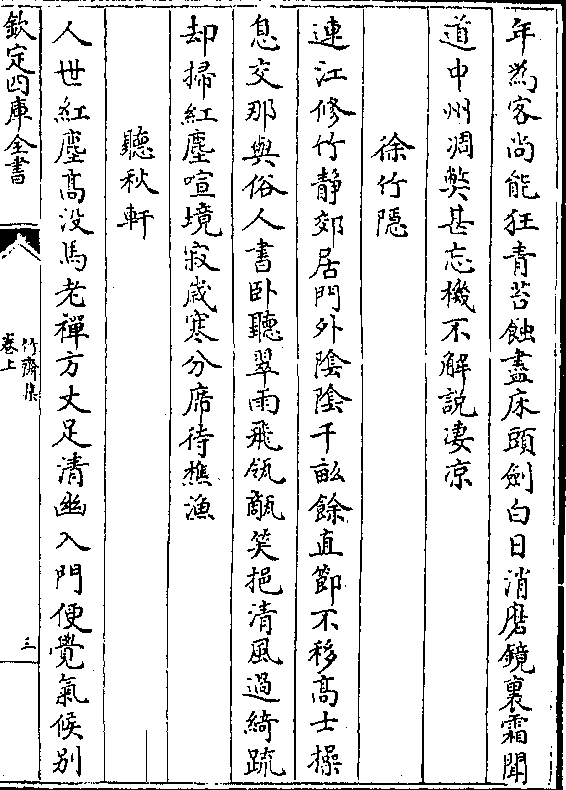 年為客尚能狂青苔蝕盡床頭劍白日消磨鏡裏霜聞
道中州凋弊甚忘機不解說凄凉
徐竹隠
連江修竹静郊居門外陰陰千畝餘直節不移高士操
息交那與俗人書卧聽翠雨飛瓴甋笑挹清風過綺疏
却掃紅塵喧境寂歳寒分席待樵漁
聽秋軒
人世紅塵髙没馬老禪方丈足清幽入門便覺氣候别
欽定四庫全書
竹齋集
卷上
三